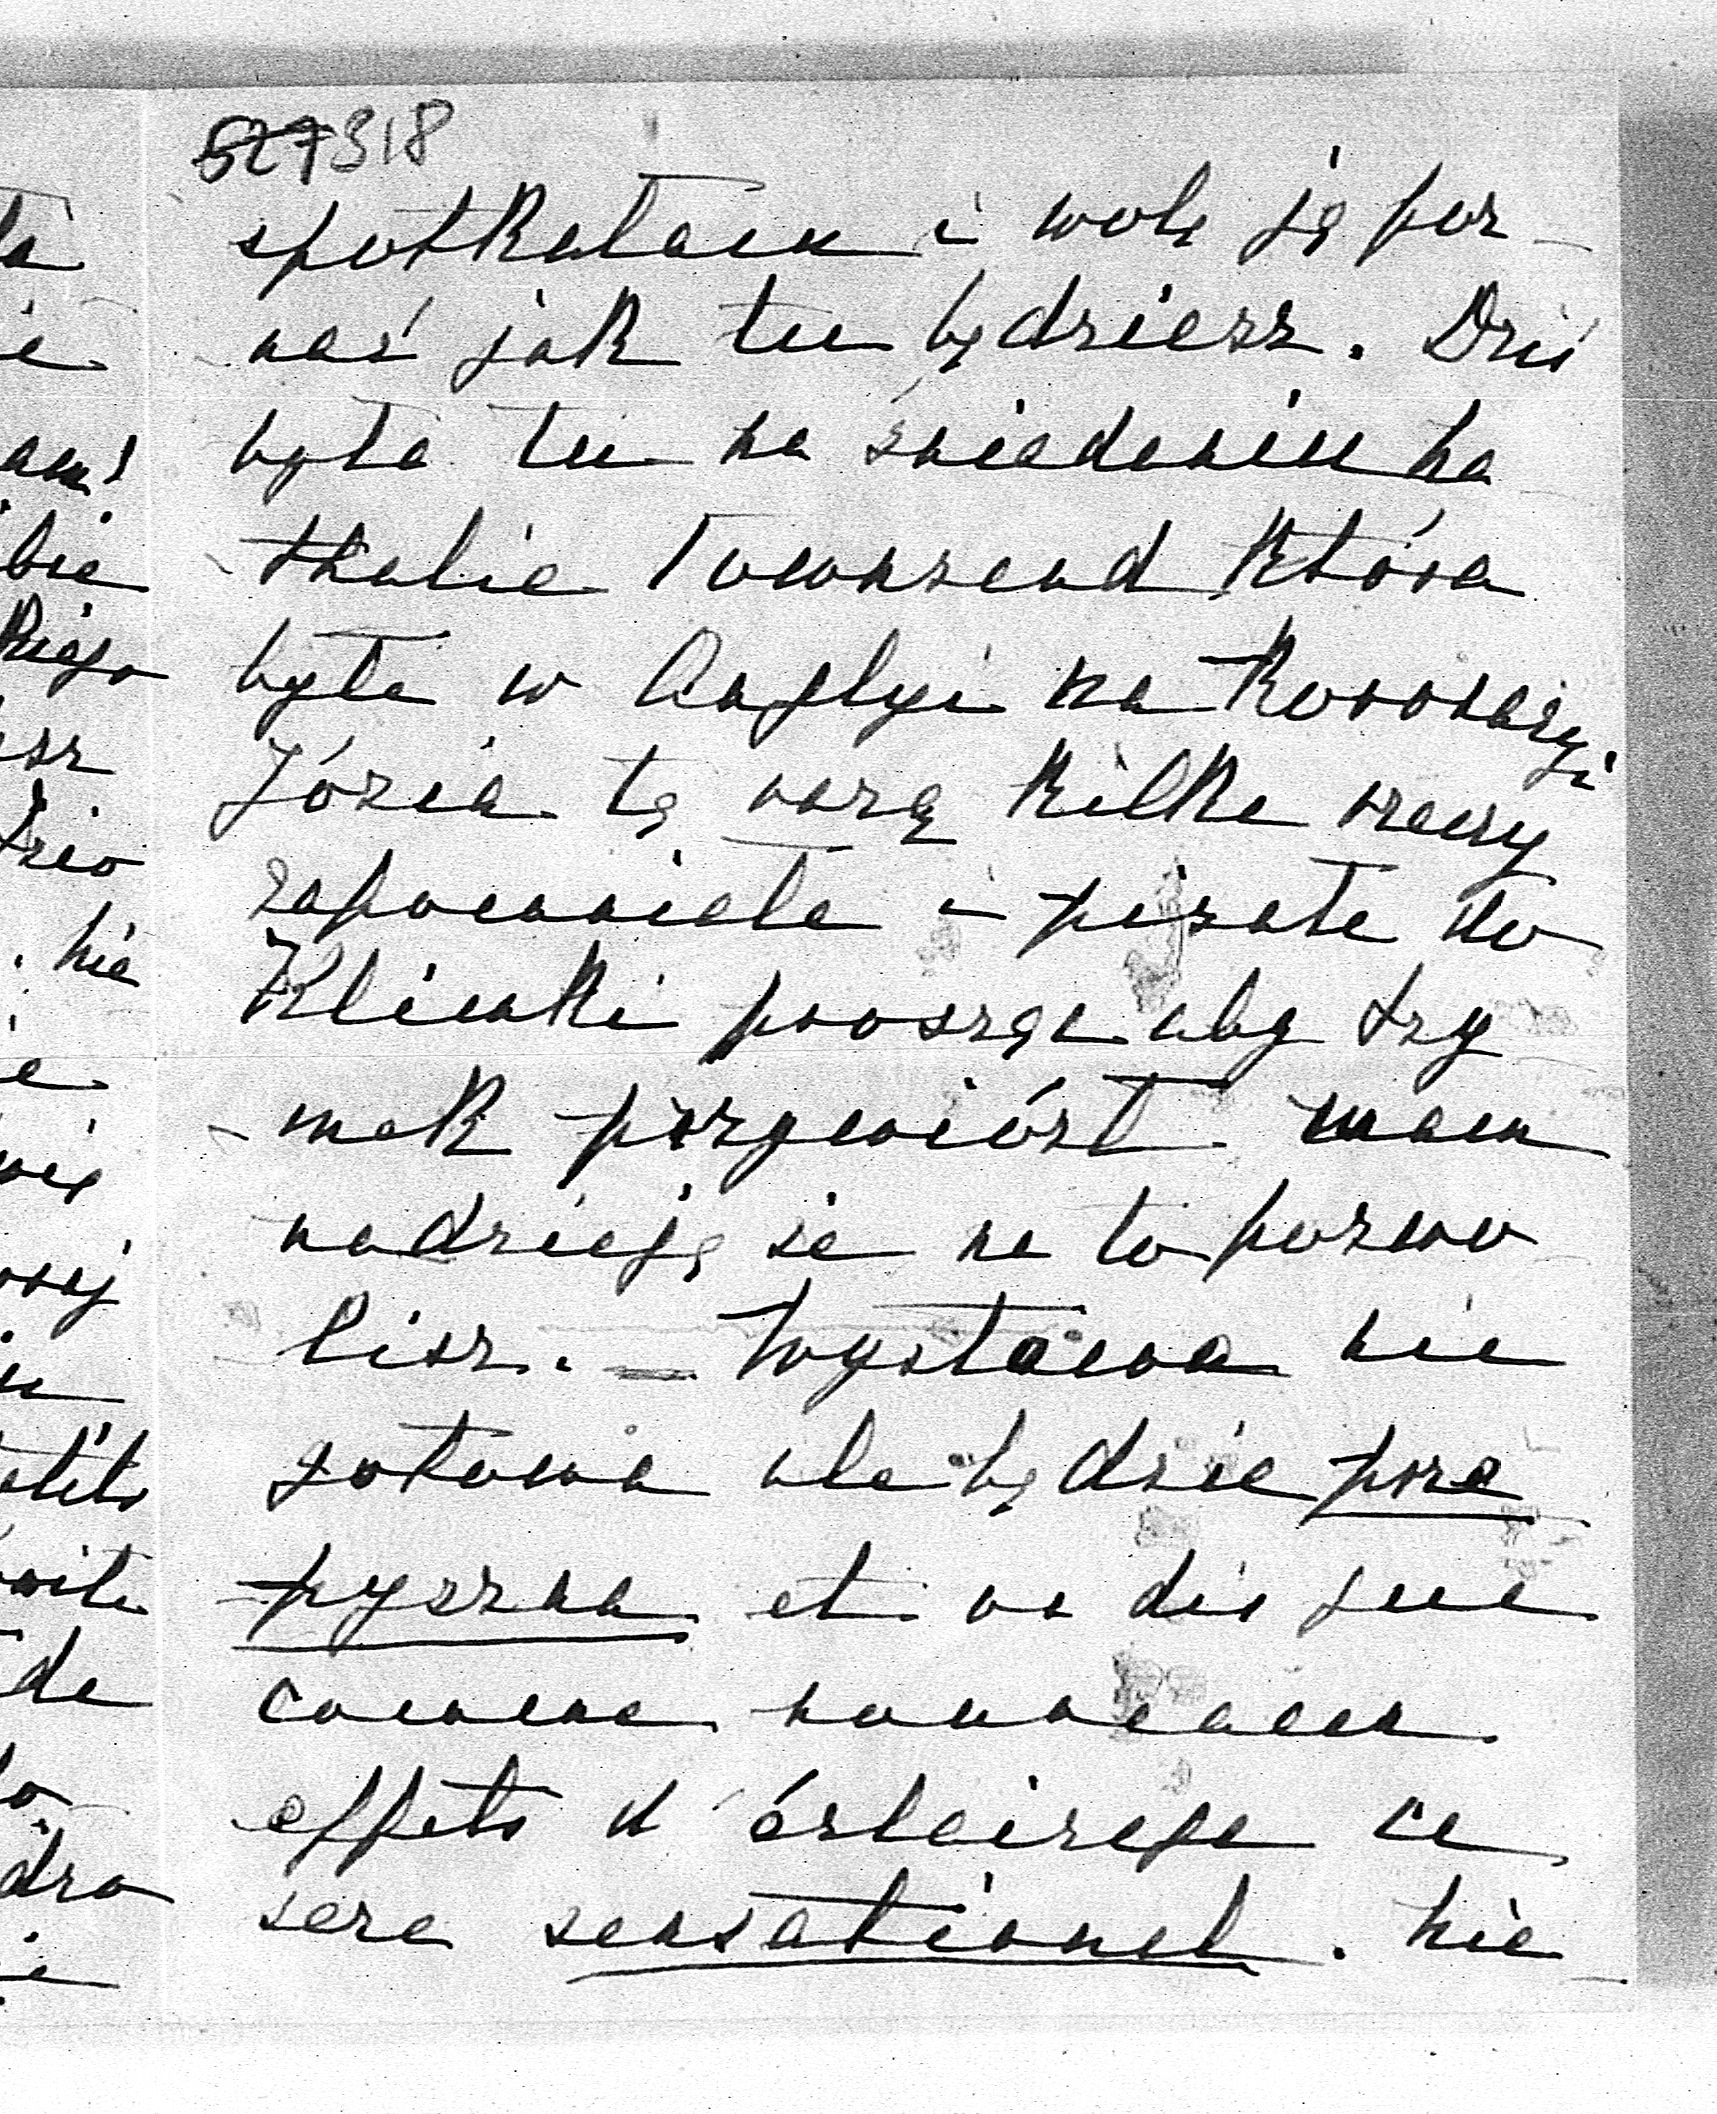 527 318
spotkałam i wolę ją poz-
nać jak tu będziesz. Dziś
była tu na śniadaniu Na
thalie Townsend która
była w Anglyi na Koronazyi
Józia tę razą kilka rzeczy
zapomniała i pisała do
Klimki prosząc aby Szy
mek przywiózł mam
nadzieję że na to pozwo
lisz. — Wystawa nie
gotowa ale będzie prze
pyszna et on dit que
comme nouveaux
effets d'éclairage ce
sera sensationel. Nie